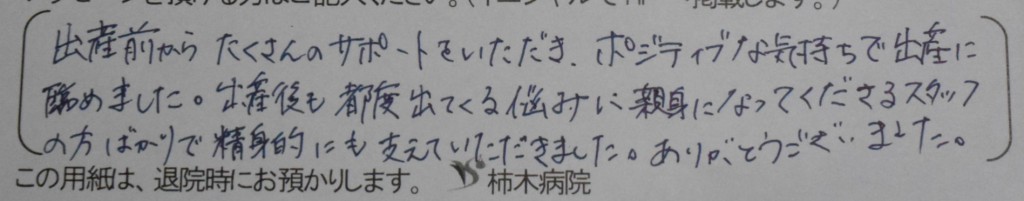 メッセージを頂ける方はご記入ください。(イニシャルで 掲載します。)
出産前から たくさんのサポートをいただき、ポジティブな気持ちで出産に
臨めました。出産後も 都度出てくる悩みに 親身になってくださるスタッフ
の方ばかりで 精身的にも支えていただきました。ありがとうございました。
この用紙は、退院時にお預かりします。 柿木病院